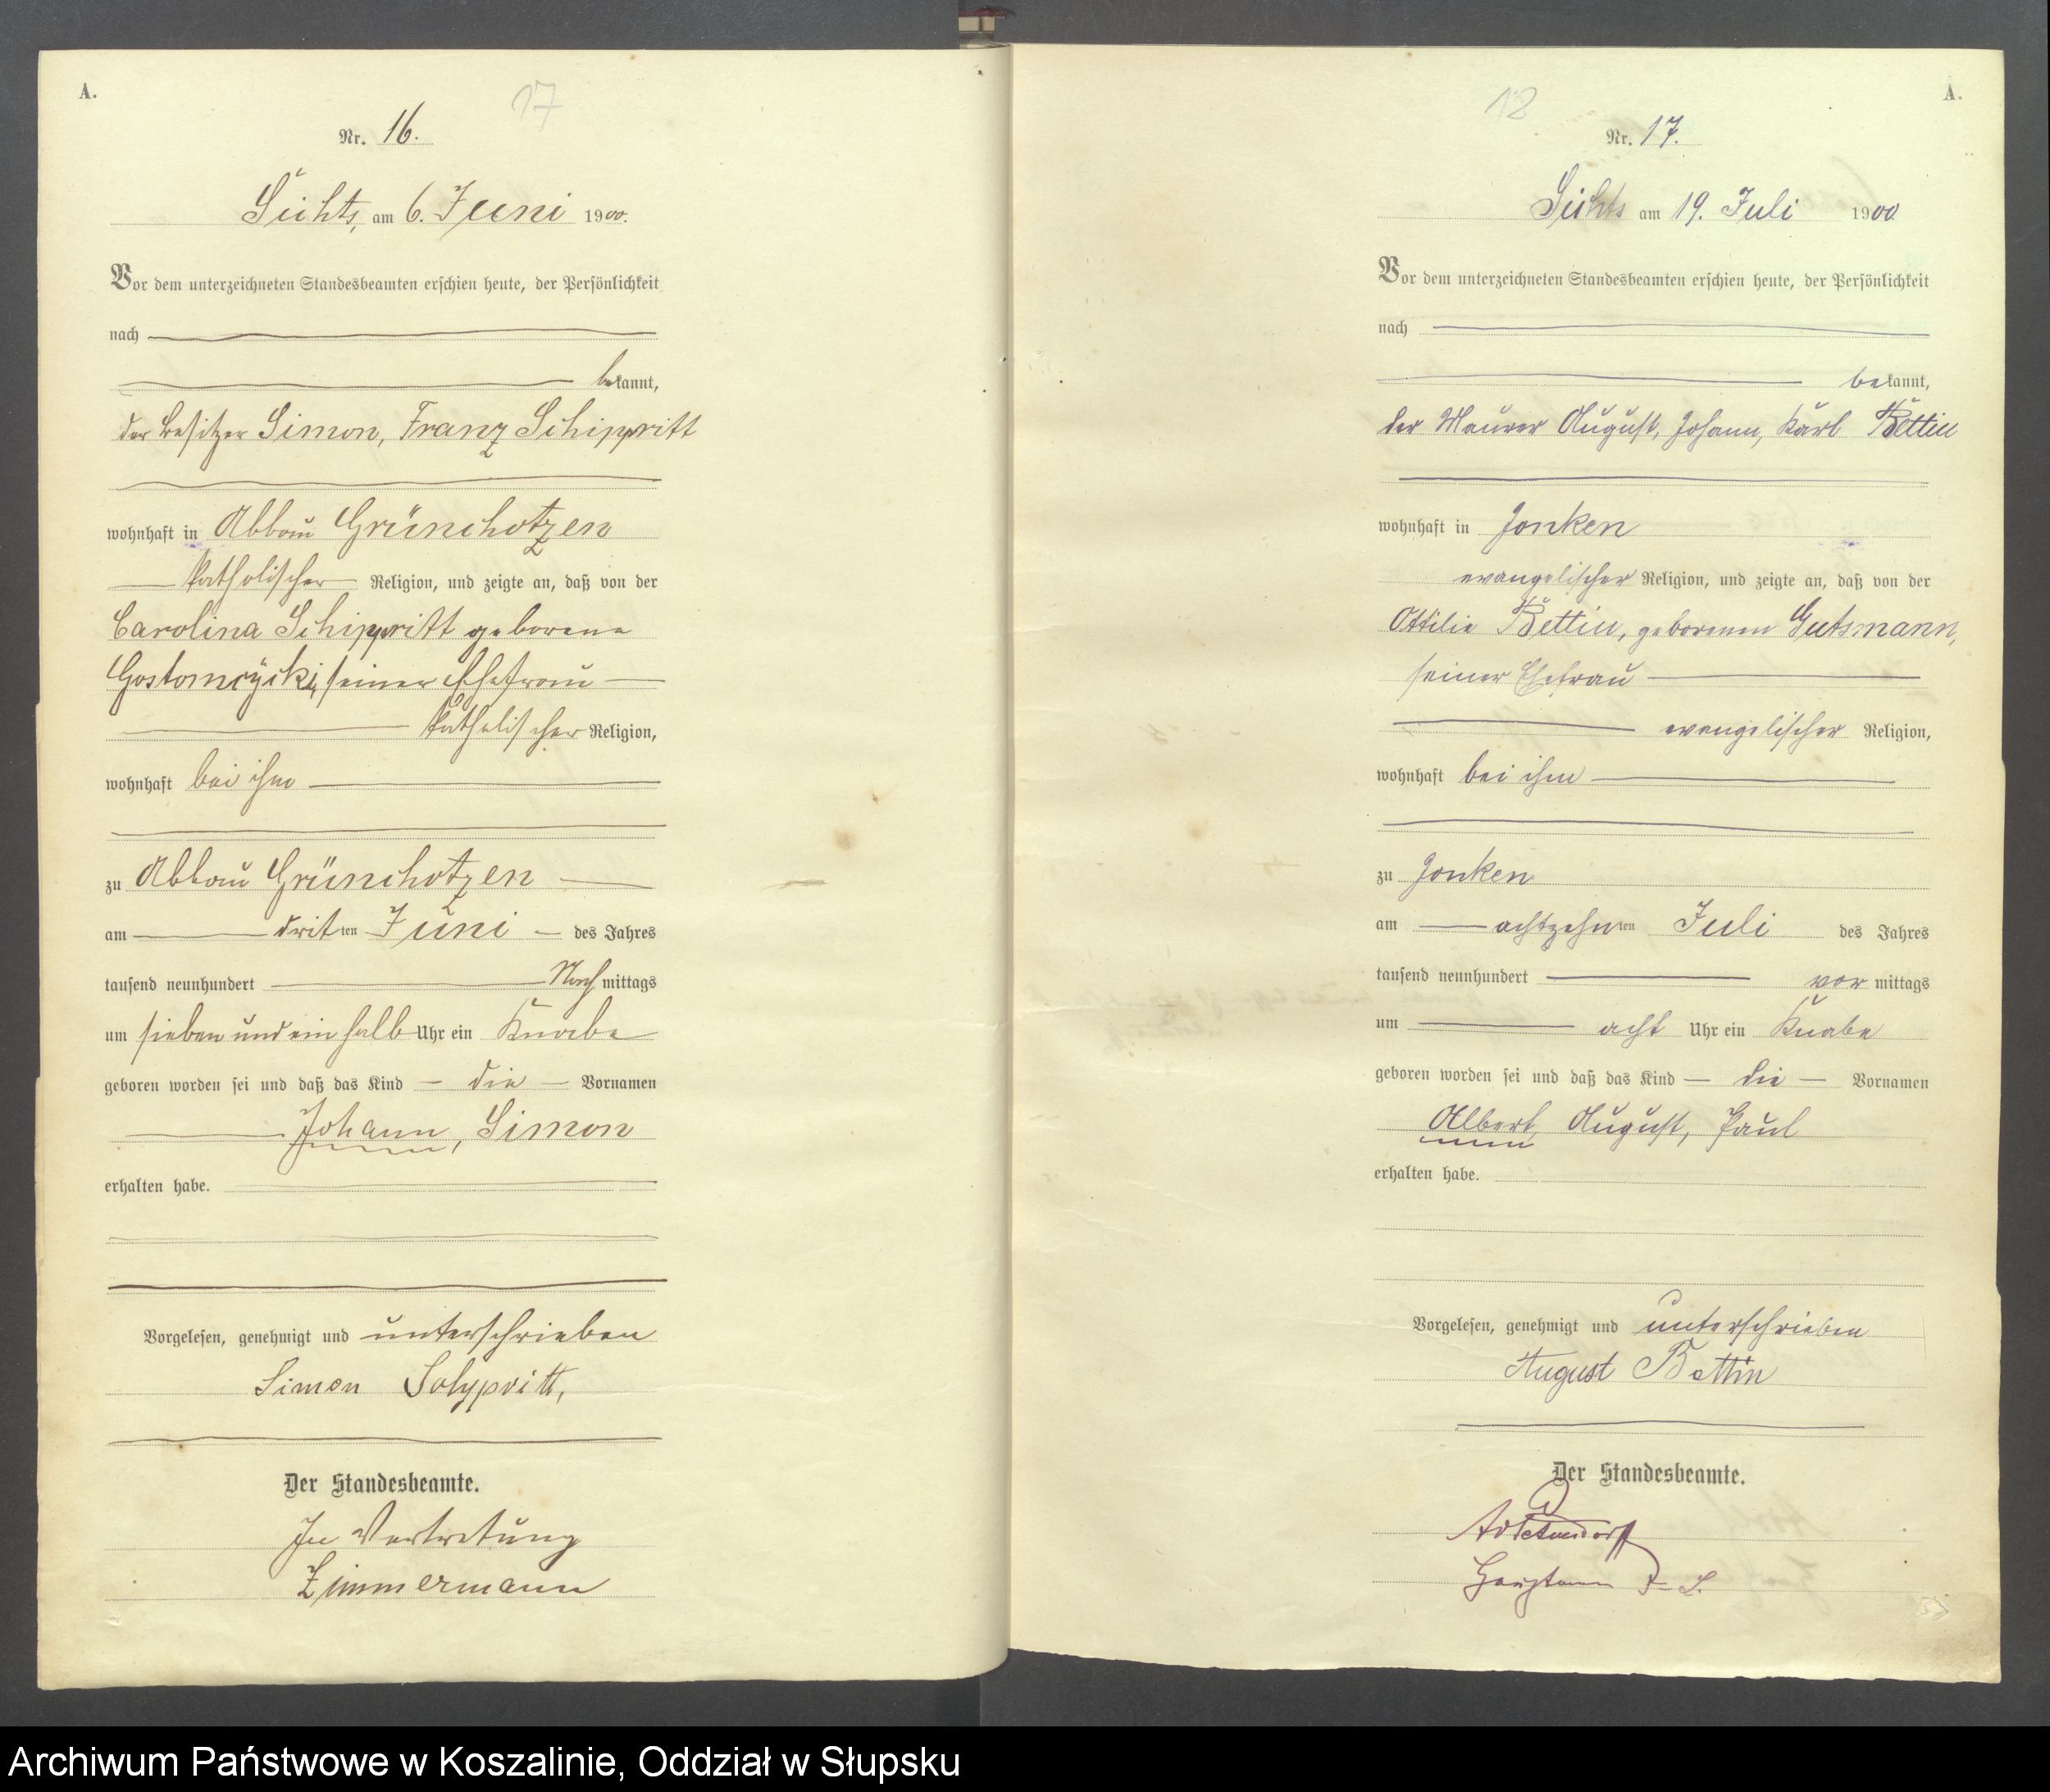 A.
17
Nr. 16.
Sichts, am 6. Juni 1900.
Vor dem unterzeichneten Standesbeamten erschien heute, der Persönlichkeit
nach
bekannt,
der Besitzer Simon, Franz Schippritt
wohnhaft in Abbau Grünchotzen
katholischer Religion, und zeigte an, daß von der
Carolina Schippritt geborene
seiner Ehefrau
katholischer Religion,
wohnhaft bei ihm
zu Abbau Grünchotzen
am dritten Juni des Jahres
tausend neunhundert Nachmittags
um sieben und ein halb Uhr ein Knabe
geboren worden sei und daß das Kind die Vornamen
Johann, Simon
erhalten habe.
Vorgelesen, genehmigt und unterschrieben
Simon
Der Standesbeamte.
In Vertretung
Zimmermann
A.
Nr. 17.
Sichts am 19. Juli 1900
Vor dem unterzeichneten Standesbeamten erschien heute, der Persönlichkeit
nach
bekannt,
der Maurer August, Johann, Karl Bettin
wohnhaft in Jonken
evangelischer Religion, und zeigte an, daß von der
Ottilie Bettin, geborenen Gutsmann,
seiner Ehefrau
evangelischer Religion,
wohnhaft bei ihm
zu Jonken
am achtzehnten Juli des Jahres
tausend neunhundert vormittags
um acht Uhr ein Knabe
geboren worden sei und daß das Kind die Vornamen
Albert, August, Paul
erhalten habe.
Vorgelesen, genehmigt und unterschrieben
August Bettin
Der Standesbeamte.
Archiwum Państwowe w Koszalinie, Oddział w Słupsku